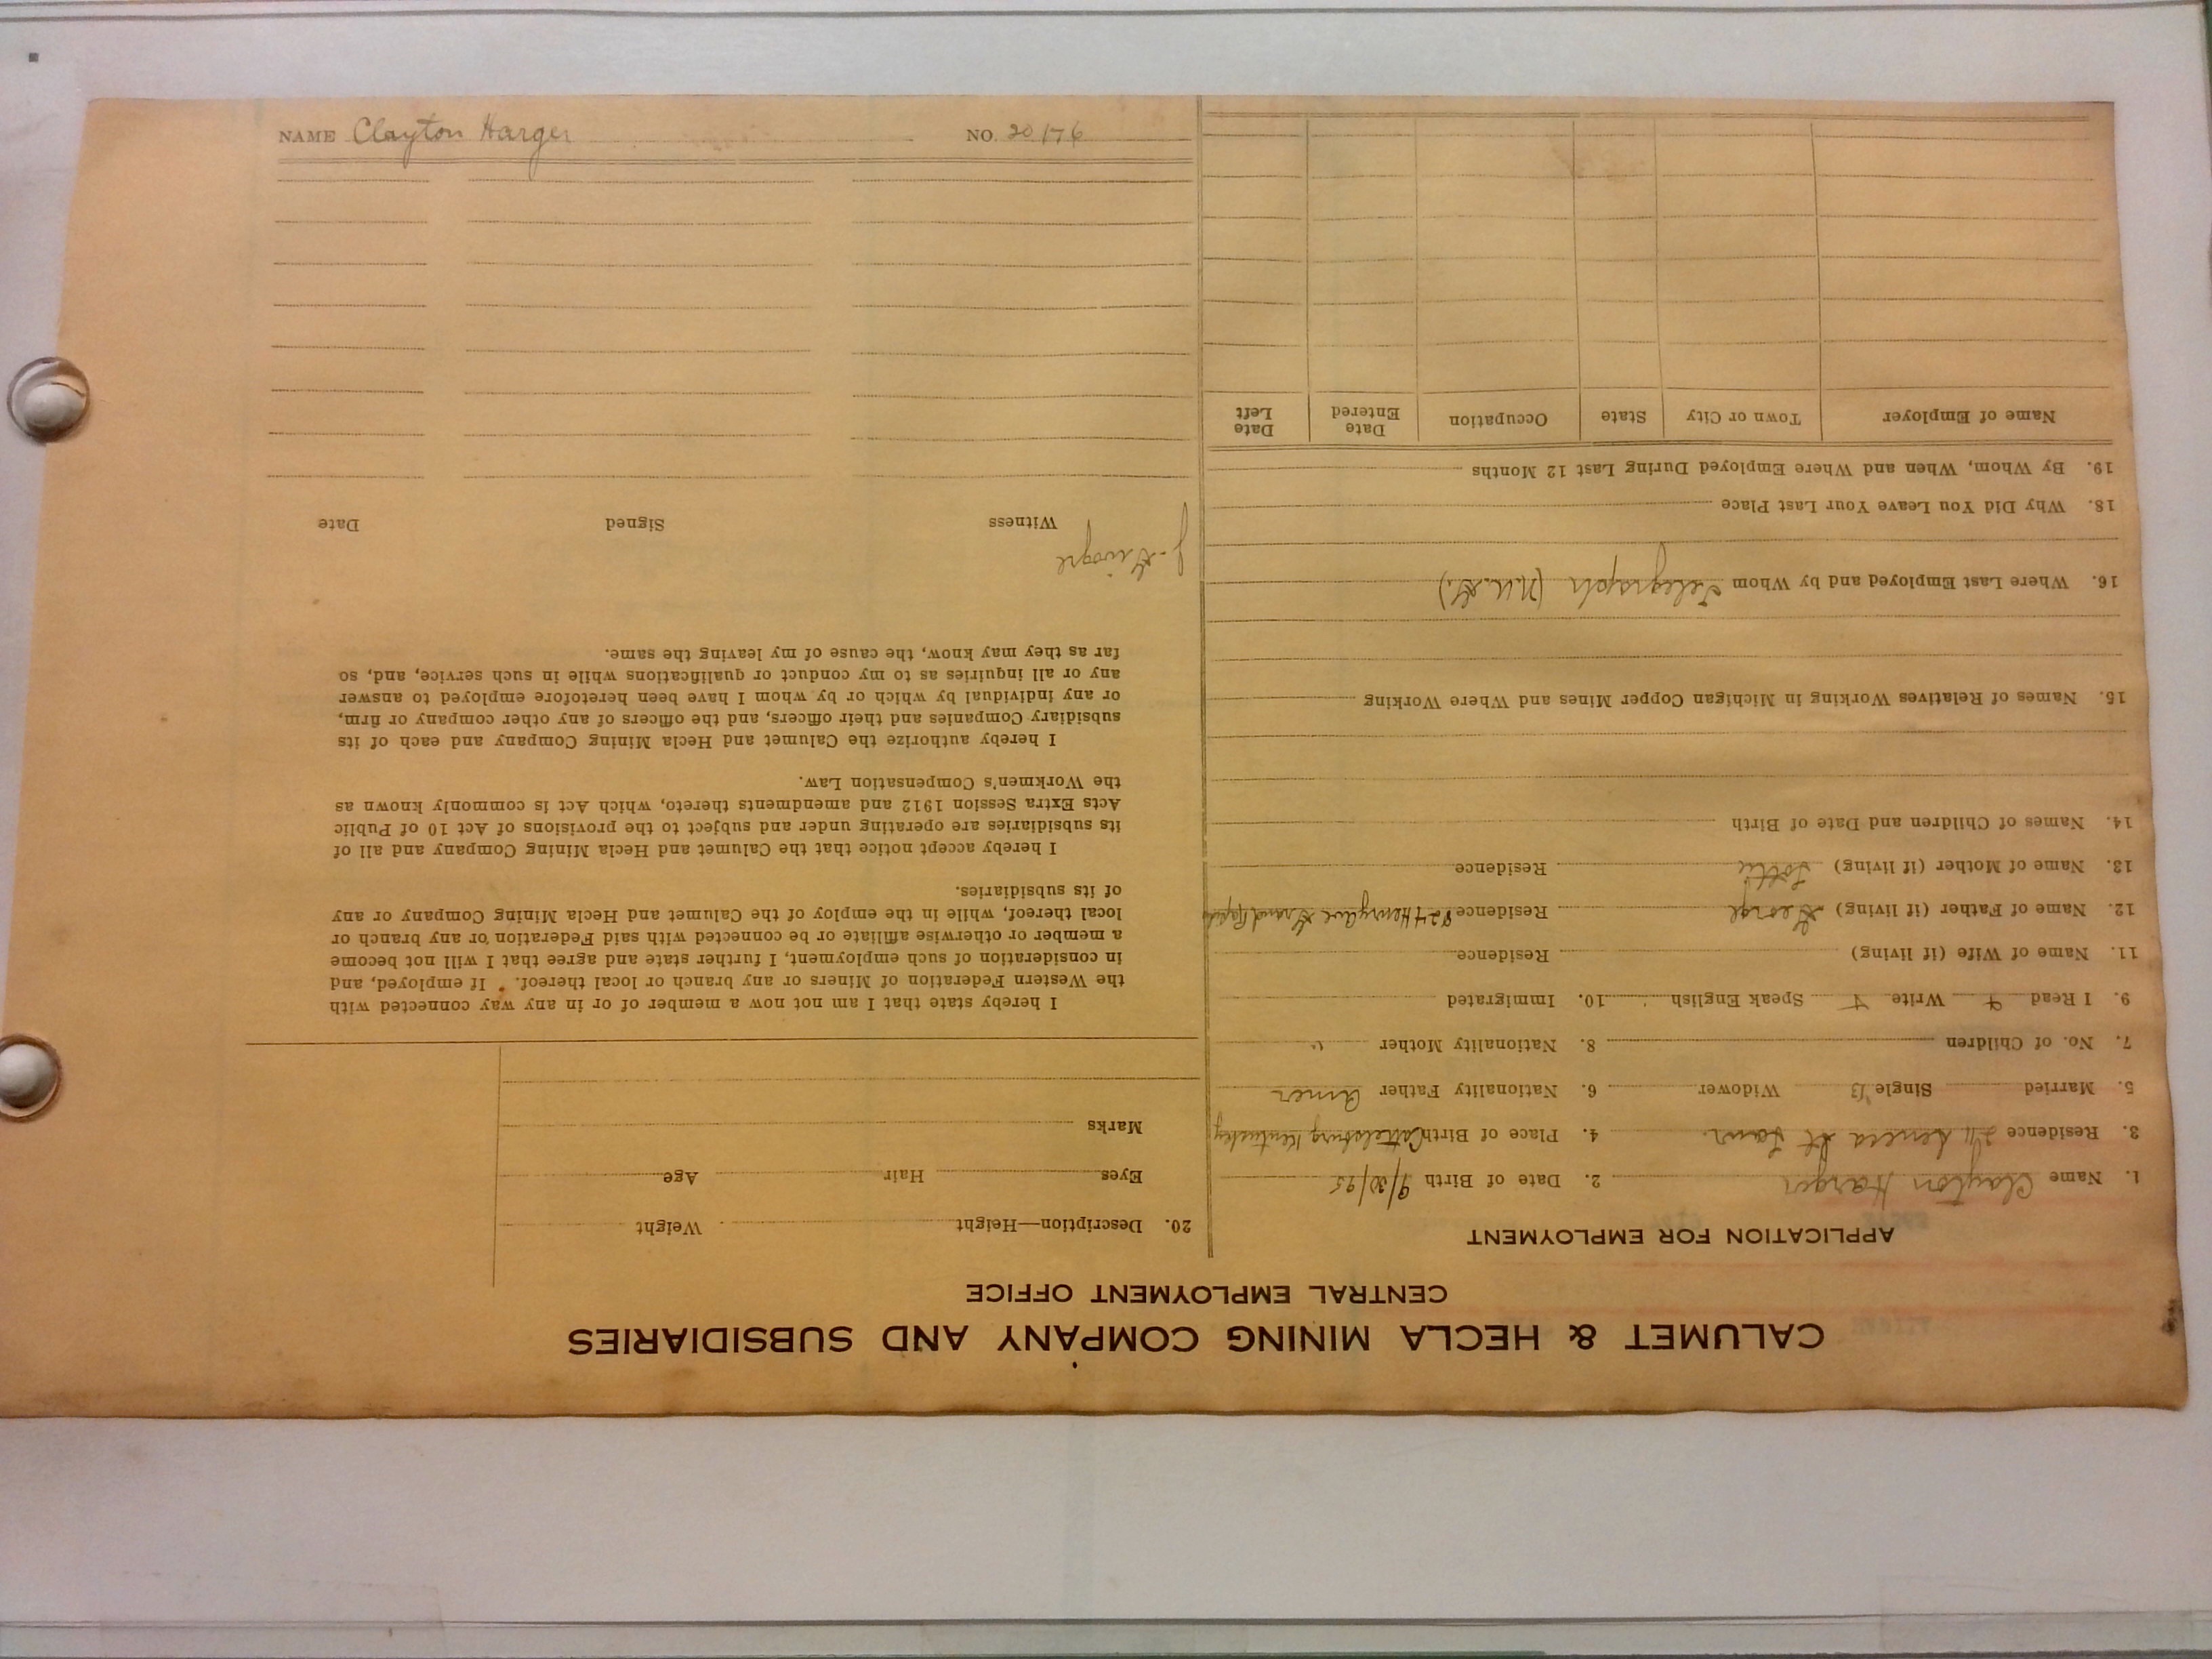 CALUMET & HECLA MINING COMPANY AND SUBSIDIARIES
CENTRAL EMPLOYMENT OFFICE
APPLICATION FOR EMPLOYMENT
1. Name Clayton Harger 2. Date of Birth 9/30/95
3. Residence Seneca St 4. Place of Birth Cattelsburg Kentucky
5. Married Single Widower 6. Nationality Father Amer
7. No. of Children 8. Nationality Mother "
9. I Read Write Speak English 10. Immigrated
11. Name of Wife (if living) Residence
12. Name of Father (if living) George Residence 924 Henry ave Grand Rapids
13. Name of Mother (if living) Lottie Residence
14. Names of Children and Date of Birth
15. Names of Relatives Working in Michigan Copper Mines and Where Working
16. Where Last Employed and by Whom Telegraph
18. Why Did You Leave Your Last Place
19. By Whom, When and Where Employed During Last 12 Months
Name of Employer Town or City State Occupation Date Entered Date Left
20. Description—Height Weight
Eyes Hair Age
Marks
I hereby state that I am not now a member of or in any way connected with
the Western Federation of Miners or any branch or local thereof. If employed, and
in consideration of such employment, I further state and agree that I will not become
a member or otherwise affiliate or be connected with said Federation or any branch or
local thereof, while in the employ of the Calumet and Hecla Mining Company or any
of its subsidiaries.
I hereby accept notice that the Calumet and Hecla Mining Company and all of
its subsidiaries are operating under and subject to the provisions of Act 10 of Public
Acts Extra Session 1912 and amendments thereto, which Act is commonly known as
the Workmen's Compensation Law.
I hereby authorize the Calumet and Hecla Mining Company and each of its
subsidiary Companies and their officers, and the officers of any other company or firm,
or any individual by which or by whom I have been heretofore employed to answer
any or all inquiries as to my conduct or qualifications while in such service, and, so
far as they may know, the cause of my leaving the same.
Witness Signed Date
NAME Clayton Harger NO. 20176